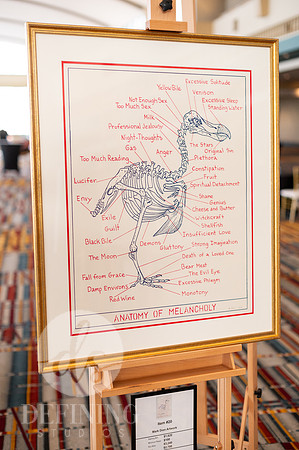 Item #20
Excessive Solitude
Yellow Bile
Venison
Not Enough Sex
Excessive Sleep
Too Much Sex
Standing Water
Milk
Professional Jealousy
Night-Thoughts
The Stars
Original Sin
Gas
Anger
Plethora
Too Much Reading
Constipation
Fruit
Lucifer
Spiritual Detachment
Envy
Shame
Genius
Cheese and Butter
Exile
Witchcraft
Guilt
Shellfish
Insufficient Love
Black Bile
Demons
Strong Imagination
Gluttony
The Moon
Death of a Loved One
Bear Meat
Fall from Grace
The Evil Eye
Damp Environs
Excessive Phlegm
Red Wine
Monotony
ANATOMY OF MELANCHOLY
DEFINING
STUDIOS
Item #20